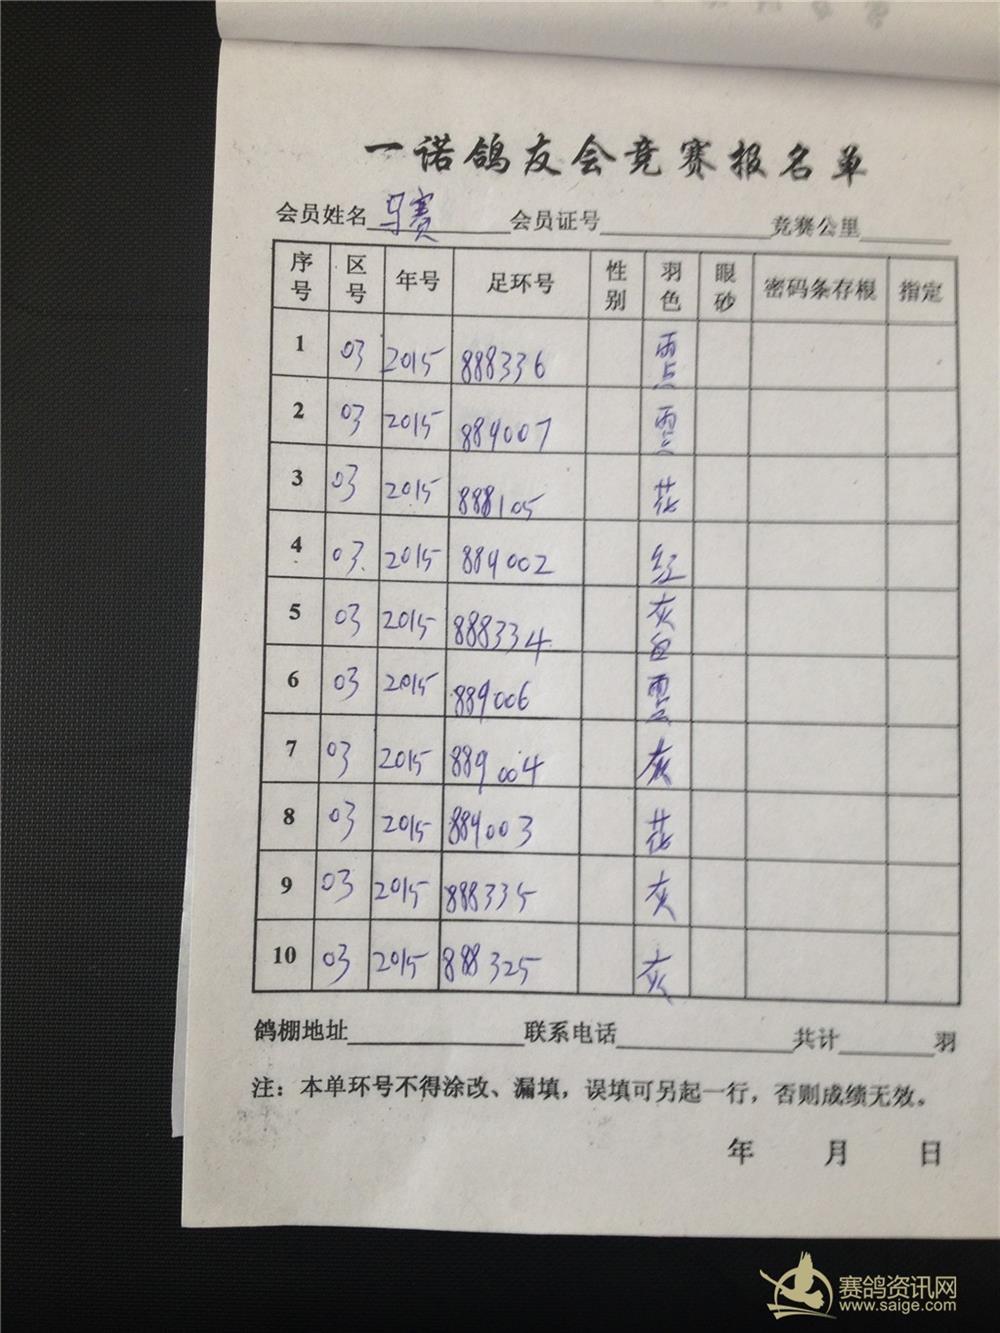 一诺鸽友会竞赛报名单
会员姓名 马赛 会员证号 竞赛公里
序号 区号 年号 足环号 性别 羽色 眼砂 密码条存根 指定
1 03 2015 888336 雨点
2 03 2015 889007 雨点
3 03 2015 888105 花
4 03 2015 889002 红
5 03 2015 888334 灰白
6 03 2015 889006 雨点
7 03 2015 889004 灰
8 03 2015 889003 花
9 03 2015 888335 灰
10 03 2015 888325 灰
鸽棚地址 联系电话 共计 羽
注：本单环号不得涂改、漏填，误填可另起一行，否则成绩无效。
年 月 日
赛鸽资讯网
www.saige.com